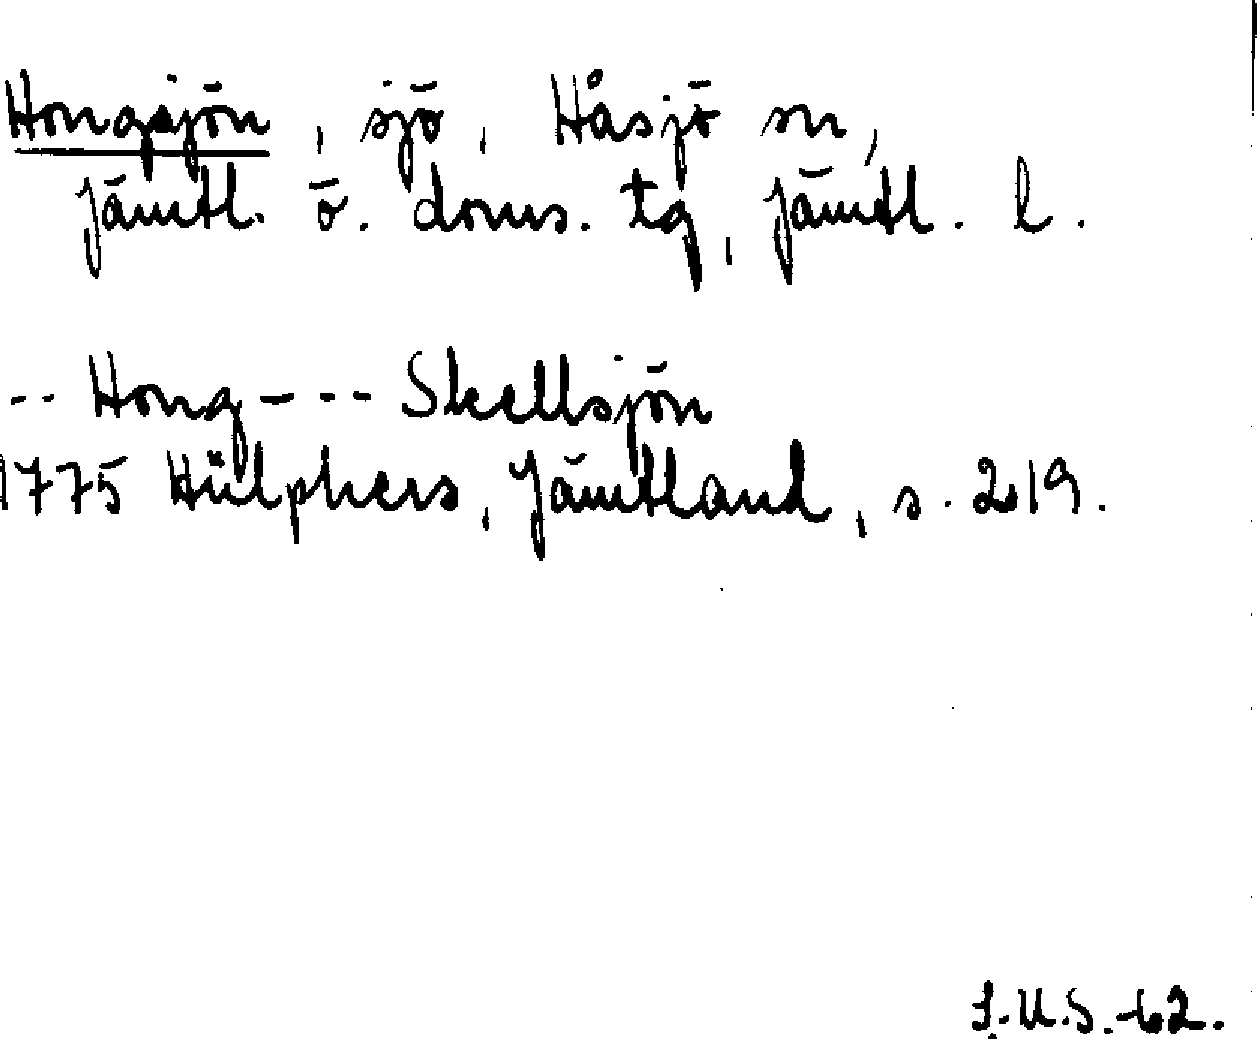 Hongsjön, sjö, Håsjö sn,
Jämtl. ö. doms. tg, Jämtl. l.
-- Hong --- Skellsjön
1775 Hülphers, Jämtland, s. 219.
S.U.S.-62.